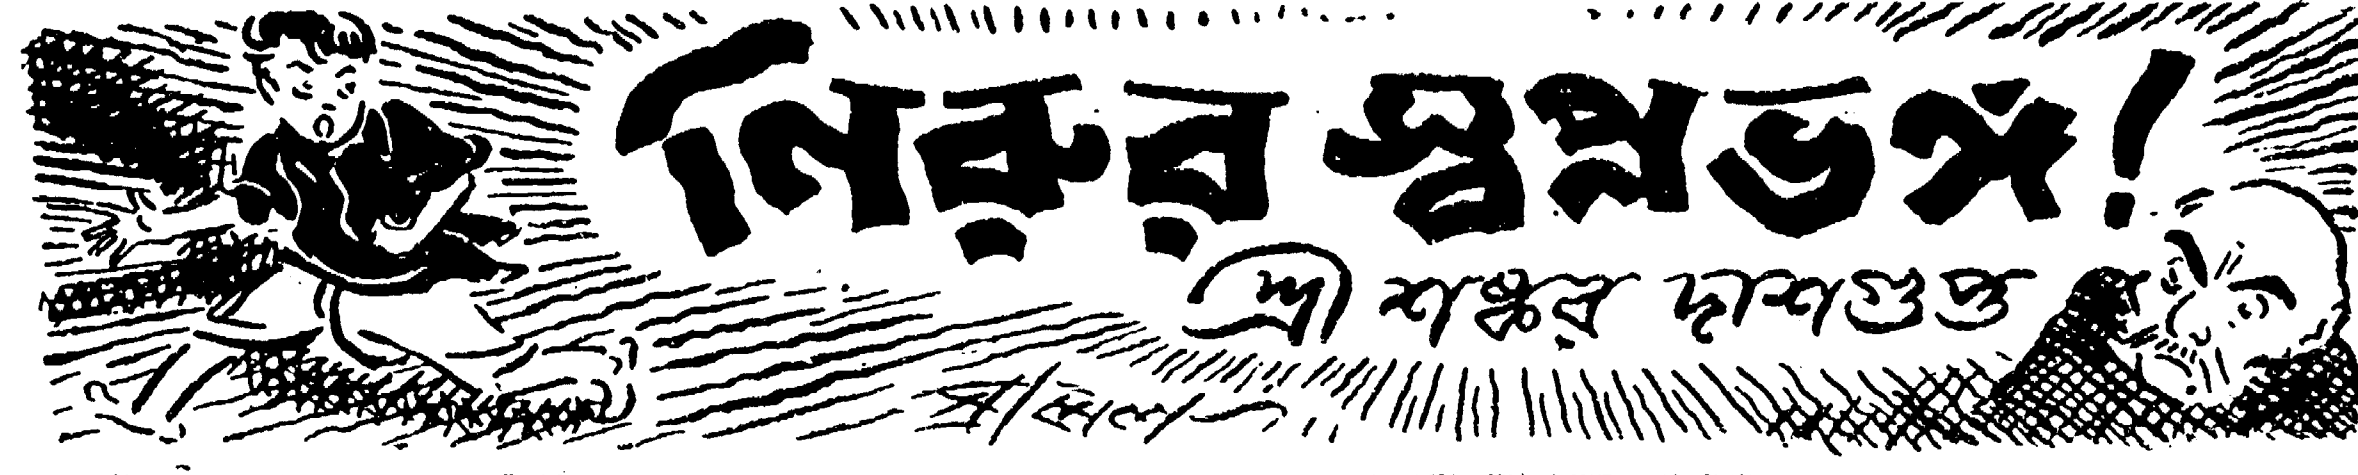 নিরুর স্বপ্নভঙ্গ!
শ্রী শঙ্কর দাশগুপ্ত